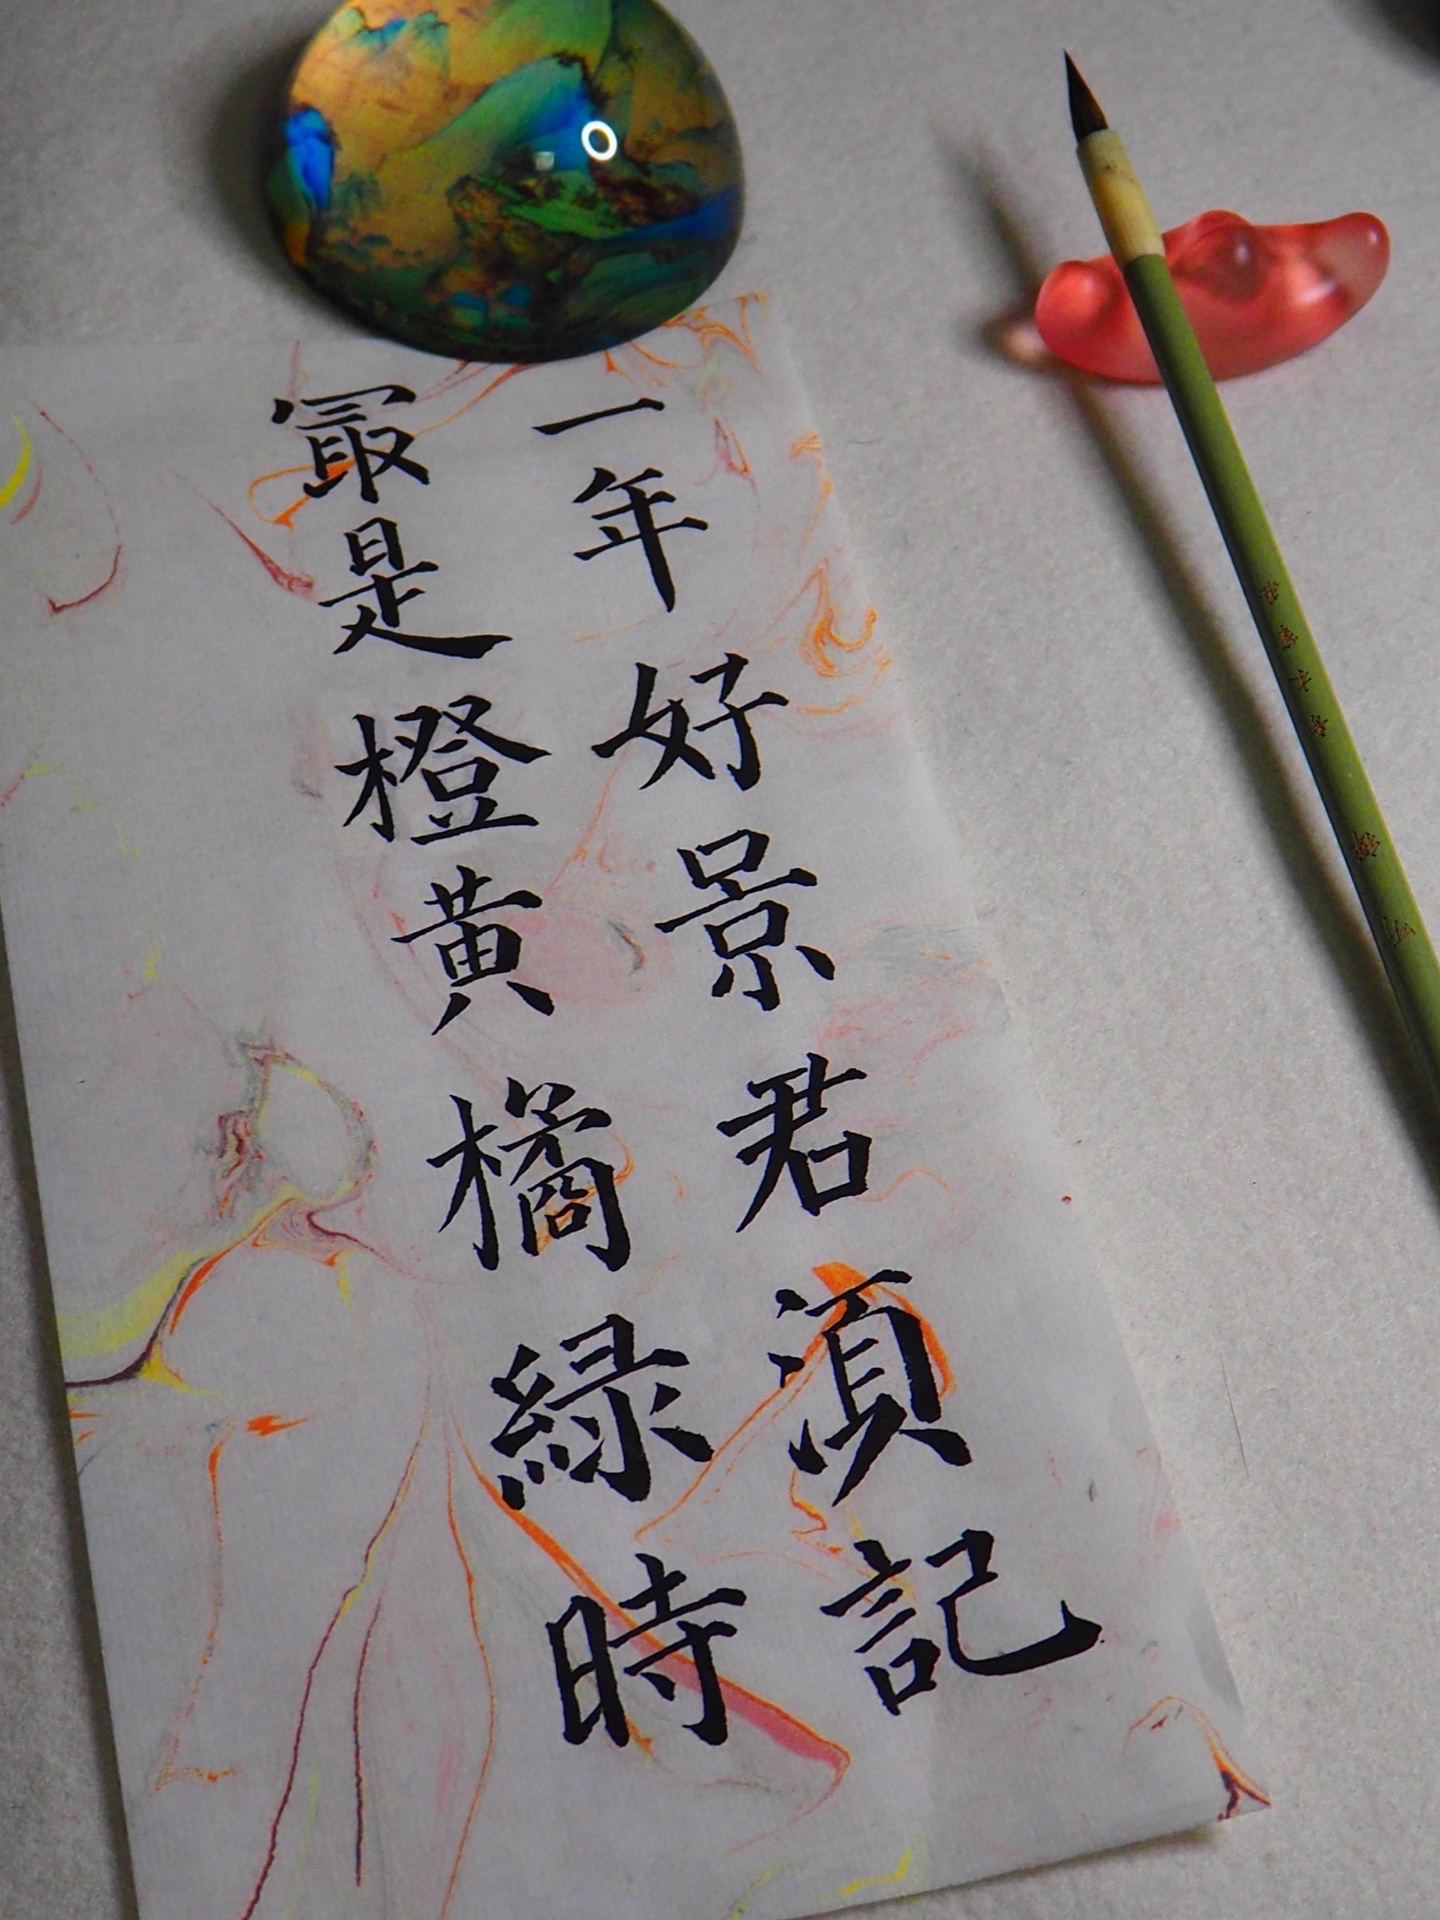 一年好景君須記
最是橙黃橘緑時